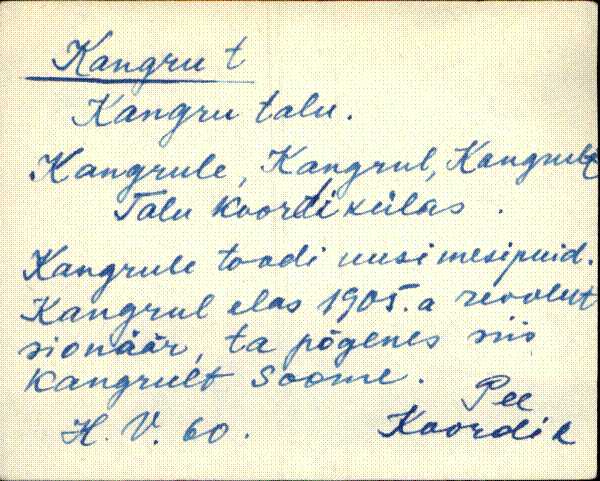 Kangru t
Kangru talu.
Kangrule, Kangrul, Kangrult
Talu Koordi külas.
Kangrule toodi uusi mesipuid.
Kangrul elas 1905.a revolut
sionäär, ta põgenes siis
Kangrult Soome.
Pee
H. V. 60. Koordi k